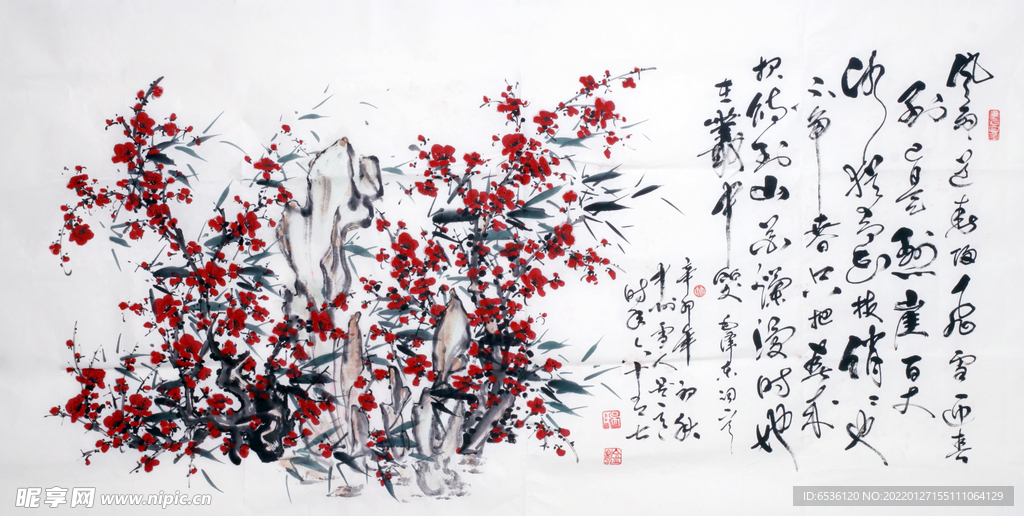 风雨送春归飞雪迎春
到已是悬崖百丈
冰犹有花枝俏俏也
不争春只把春来
报待到山花烂漫时她
在叢中笑 毛泽东词
辛卯年初秋
中州雪人
时年六十有七
昵享网 www.nipic.cn
ID:6536120 NO:20220127155111064129